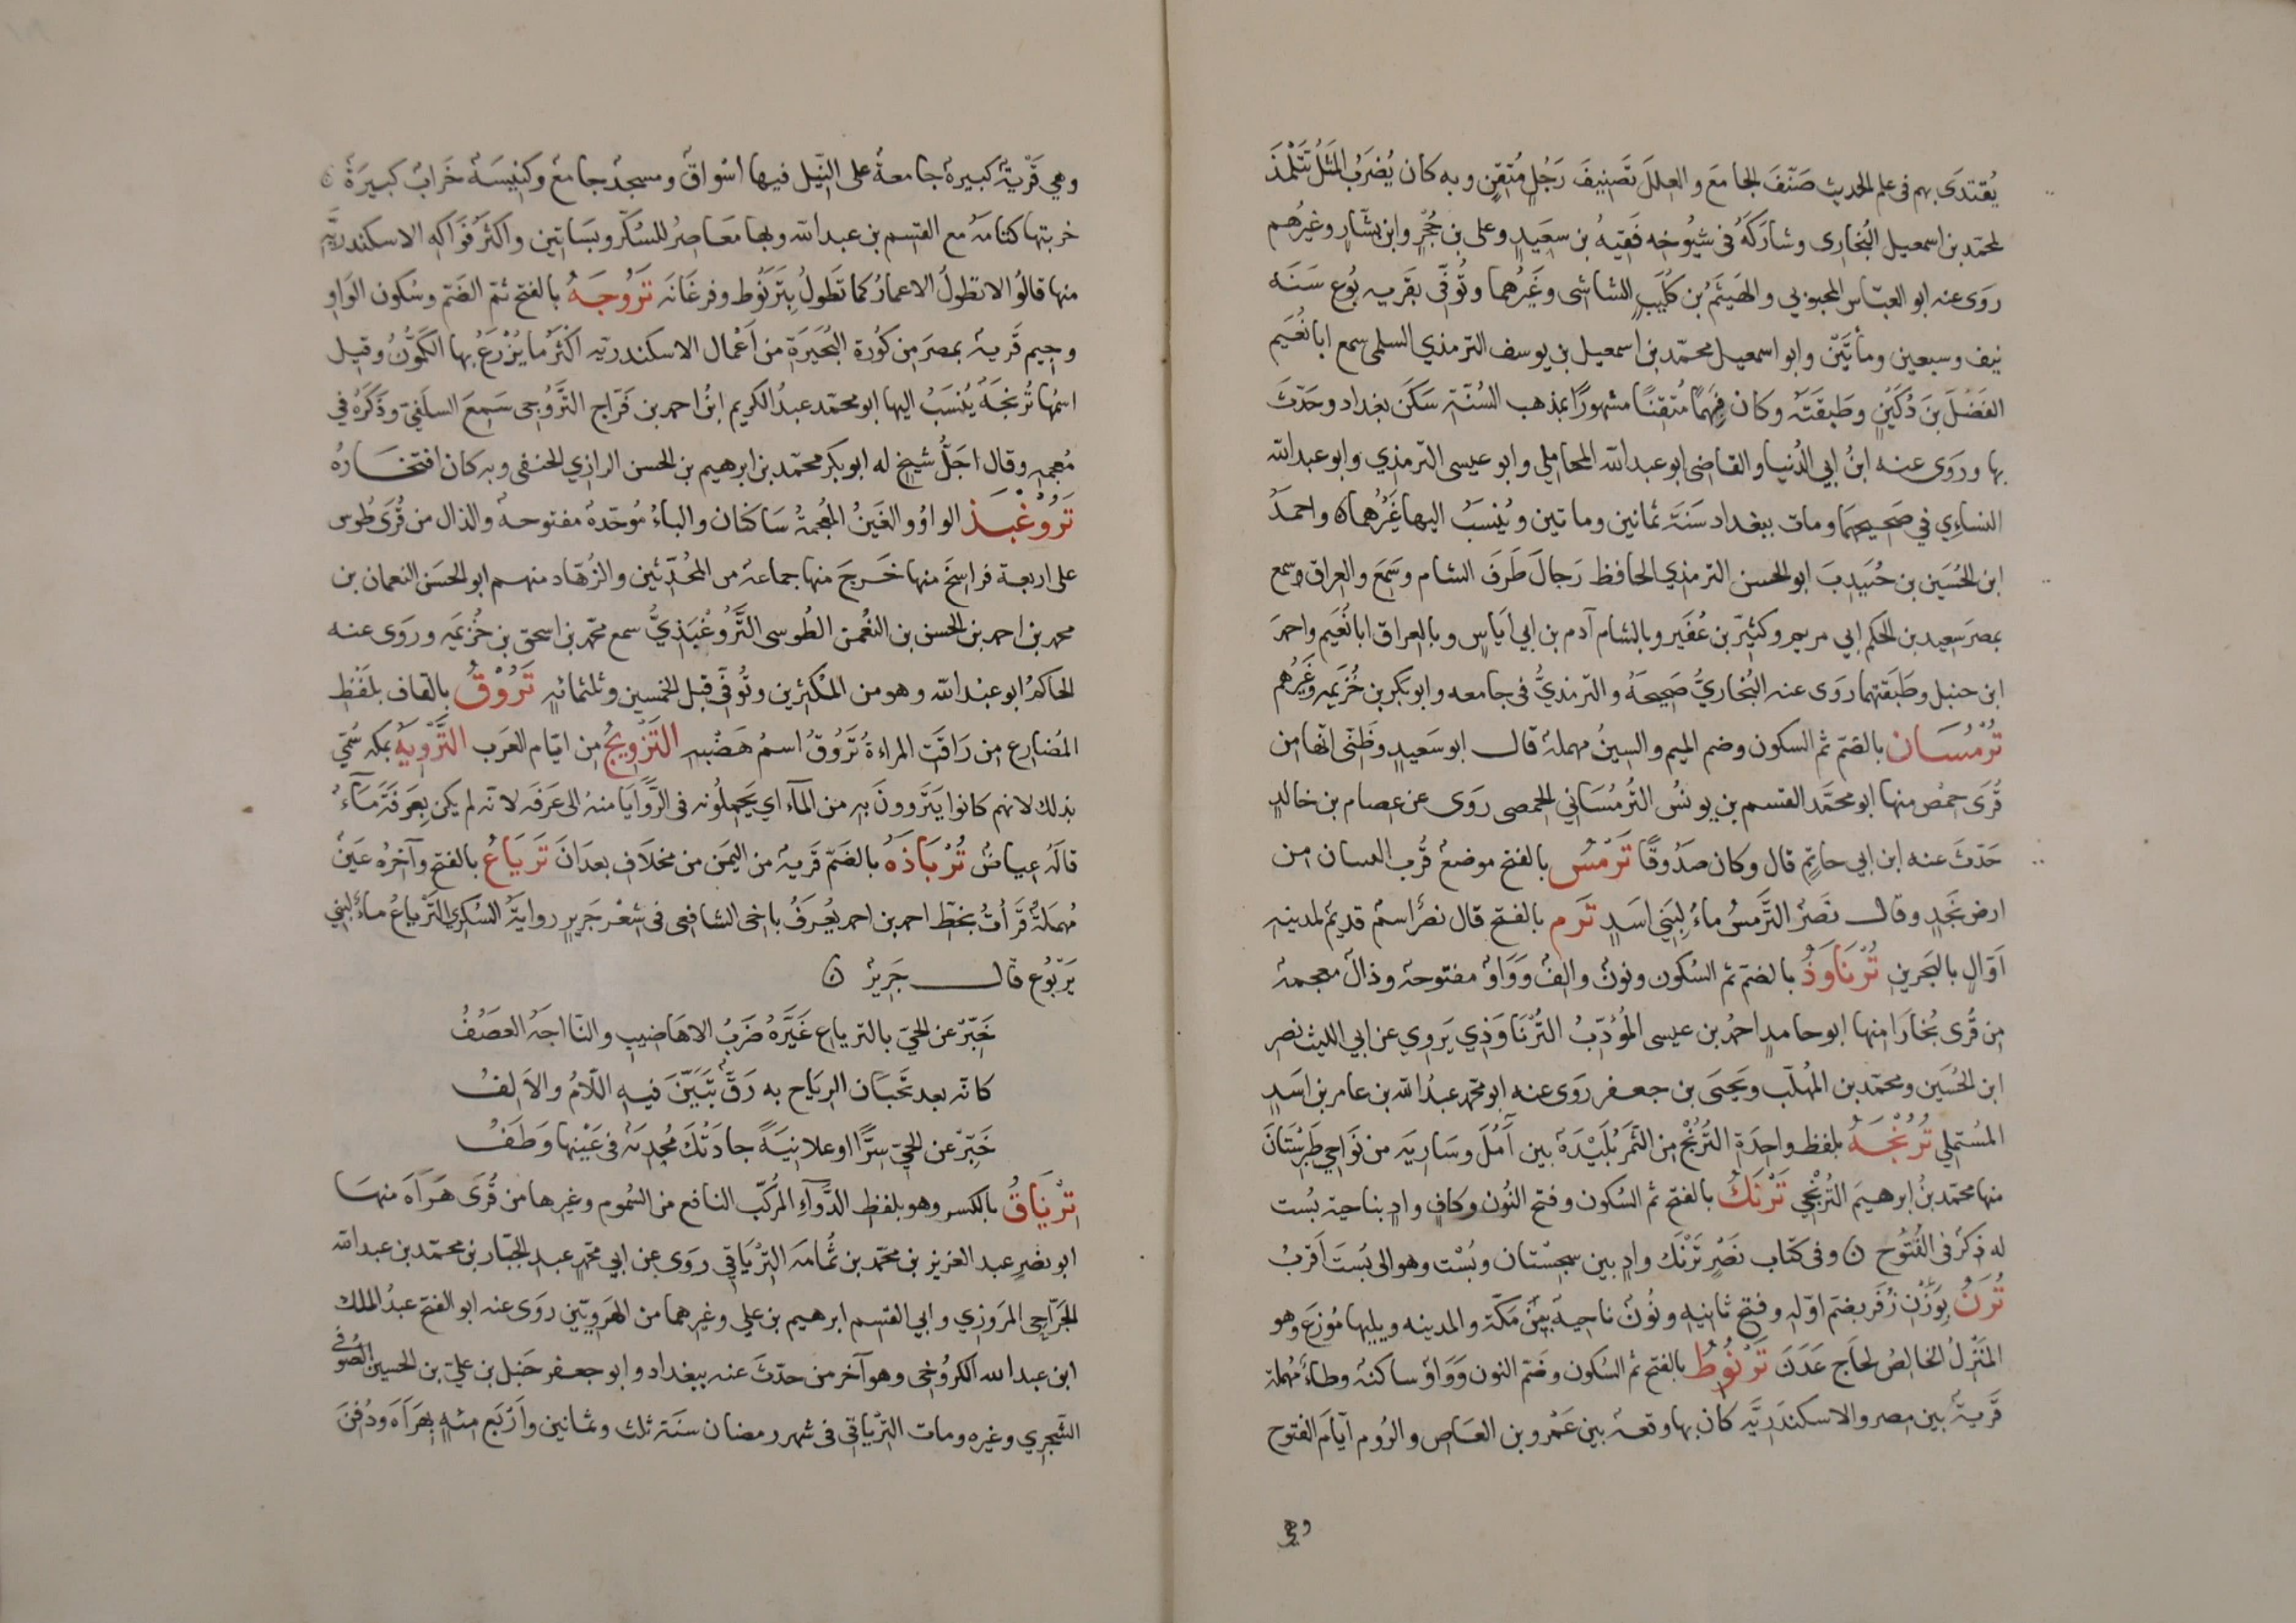 يُقتدَى بهم فى علم الحديث صَنّفَ الجامعَ والعِللَ تَصْنِيفَ رَجُلٍ مُتقِنٍ وبه كان يُضرَبُ المَثلُ تَتَلْمَذَ
لمحمّد بن اسمعيل البُخارى وشارَكَهُ فى شيُوخه قتيبة بن سعَيدٍ وعلى بن حُجْرٍ وابن بشّارٍ وغيرُهم
رَوَى عنه ابو العبّاس المحبوبى والهَيثَم بن كُلَيبٍ الشاشى وغيرُهما وتُوفّى بقَريه بُوغ سَنَه
نيف وسبعين ومأتَيْن وابو اسمعيل محمّد بن اسمعيل بن يوسف الترمذي السلمى سمع ابا نُعَيم
الفَضْلَ بنَ دُكَيْنٍ وطَبقَتَهُ وكان فَهِمًا مُتقنًا مشهورًا بمذهب السُنّة سَكَن بغداد وحَدّثَ
بها ورَوَى عنه ابنُ ابي الدُنيا والقاضى ابو عبد الله المحاملي وابو عيسى الترمذي وابو عبد الله
النساءي في صَحيحهما ومات ببغداد سَنَة ثمانين وماتين ويُنسَبُ اليها غَيْرُهما ۵ واحمدُ
ابن الحُسَين بن جُنَيدب ابو الحسن الترمذي الحافظ رَحالَ طَرَفَ الشام وسَمِعَ والعراق وسمع
بمصر سَعيد بن الحكم ابي مريم وكثيرّ بن عُفَير وبالشام آدم بن ابي اَيَاسٍ وبالعراق ابا نُعَيم واحمدَ
ابن حنبل وطَبَقتهما رَوَى عنه البُخاريُّ صَحيحَهُ والترمذيُّ فى جامعه وابو بَكر بن خُزَيمه وغَيرُهم
تُرْمُسَان بالضمّ ثم السكون وضم الميم والسينُ مهملة قال ابو سَعيدٍ وظَنّى انّها من
قُرَى حِمْص منها ابو محمّد القسم بن يونسُ التُرمُسَاني الحمصى رَوَى عن عصام بن خالدٍ
حَدّثَ عنه ابن ابي حاتِمٍ قال وكان صَدُوقًا تَرْمُسُ بالفتح موضعٌ قُرب القنان من
ارض نَجْدٍ وقال نَصْرٌ التَّرمسُ ماءٌ لِبَنِي اسَدٍ تَرَم بالفتح قال نصرٌ اسمٌ قديمٌ لمدينه
اَوَالٍ بالبَحرين تُرْنَاوَذُ بالضمّ ثم السُكون ونونٌ والِفٌ ووَاوٌ مفتوحة وذالٌ معجمة
من قُرى بُخارَا منها ابو حامدٍ احمدُ بن عيسى المُؤدّبُ التُرْنَاوَذِي يَروِي عن ابي الليث نصر
ابن الحُسَين ومحمّد بن المُهلّب ويَحيَى بن جعفر رَوَى عنه ابو محمّد عبدُ الله بن عامر بن اسَدٍ
المُستَملِي تُرُنْجَهُ بلفظ واحِدَة التُرُنْج من الثَمَر بُلَيْدَة بين آمُلَ وسَاريَه من نَواحي طَبَرستَانَ
منها محمّد بنُ ابرهيمَ التُرُنْجي تَرْنَكُ بالفتح ثم السُكون وفتح النُون وكافٍ وادٍ بناحية بُست
له ذِكرٌ فى الفُتُوح ۵ وفى كتاب نَصْرٍ تَرْنَك وادٍ بين سِجِستان وبُسْت وهو الى بُستَ اَقربُ
تُرَنُ بِوَزْنِ زُفَر بضم اوّله وفتح ثانِيهِ ونُونٌ ناحية بين مَكّة والمدينه ويليها مُوزَع وهو
المَنْزلُ الخالِصُ لحَاج عَدَن تَرْنُوط بالفتح ثم السُكون وضم النون ووَاوٌ ساكنة وطاءٌ مُهملة
قَريةٌ بين مصر والاسكندَريّه كان بها وقعة بين عَمْرو بن العَاص والرُوم ايّام الفتوح
وهي
وهي قَرْيةٌ كبيرة جامعةٌ على النّيل فيها اسْواقٌ ومسجدٌ جامعٌ وكنيسَة خَرابٌ كبيرَة ۵
خربتها كتامَه مع القسم بن عبد الله وبها مَعَاصِرُ للسُكّر وبسَاتين واكثَرُ فوَاكِه الاسكندريّه
منها قالُوا لا تطولُ الاعمارُ كما تَطولُ بِتَرَنُوط وفرغَانَه تَرُوجَهُ بالفتح ثم الضَم وسُكون الوَاو
وجيم قَرية بمصرَ من كُورة البُحَيَرَة من اَعْمال الاسكندرية اكثرُ ما يُزْرَعُ بها الكَمُّونُ وقيل
اسمُها تُرُنجَة يُنسَبُ اليها ابو محمّد عبدُ الكريم ابنُ احمد بن فَرّاج التَّرُوجى سَمِعَ السلَفيّ وذَكرَهُ في
مُعجمِه وقال اجَلُّ شيخٍ له ابو بكر محمّد بن ابرهيم بن الحسن الرازي الحنفى وبه كان افتخارُه
تَرُوغْبَذ الواوُ والغَينُ المُعجمة سَاكنان والباءُ مُوحّدة مفتوحة والذال من قُرَى طُوس
على اربعة فراسِخَ منها خَرجَ منها جماعة من المُحدّثين والزُهّاد منهم ابو الحسَن النعمان بن
محمد بن احمد بن الحسن بن النعْمن الطُوسى التَّرُوغْبَذِيُّ سمع محمّد بن اسحق بن خُزيَمه ورَوَى عنه
الحاكمُ ابو عبد الله وهو من المُكثِرين وتُوفّي قبل الخمسين وثلثمائهِ تَرُوْقُ بالقاف بلفظِ
المُضارع من رَاقَت المراءةُ تَرُوقُ اسمُ هَضْبه التَرْويحُ من ايّام العَرَب التَّرْوِيَهُ بمكه سُمّي
بذلك لانهم كانوا يَتَّرووَن به من المآء اي يَحمِلُونه فى الرَّوَايَا منهُ الى عَرَفَه لانّه لم يكن بِعَرفَة مَآءٌ
قالَهُ عِياضٌ تُرْبَاذَهُ بالضَمّ قَرية من اليمَن من مخلاف بعدَانَ تَرْيَاعُ بالفتح وآخرُه عَينٌ
مُهمَلَةٌ قرَأتُ بخطّ احمد بن احمد يُعرَفُ باخى الشافعى فى شِعْر جَريرٍ روايَةُ السُكري التَّرْياعُ ماءٌ لبني
يَربُوع قال جَرِيرٌ ۵
خَبِّرْ عن الحيّ بالترياع غَيَّرَهُ ضَربُ الاهاضيبِ والنااجَهُ العصُفُ
كانّه بعد تَحنَان الرياح به رَقٌ تَبَيَّنَ فيه اللّامُ والاَلفُ
خَبِّرْ عن الحيّ سِرًّا او علانيَةً جادَتْكَ مُجِدنة فى عَيْنِها وَطَفُ
تِرْيَاقُ بالكسر وهو بلفظ الدَّوآءِ المُرَكّب النافع من السُموم وغيرها من قُرَى هَرَاة منها
ابو نَصْرٍ عبد العزيز بن محمّد بن ثُمامَه التِرْيَاقي رَوَى عن ابي محمّدٍ عبد الجبّار بن محمّد بن عبد الله
الجرّاحِى المرَوزي وابي القسم ابرهيم بن علي وغيرهما من الهَرويّين رَوَى عنه ابو الفتح عبدُ الملك
ابن عبد الله الكرُوخى وهو آخر من حدّثَ عنه ببغداد وابو جعفر حَنبل بن علي بن الحسين الصُوفى
الشَجري وغيره ومات التِرياقى فى شهر رمضان سنَة ثلث وثمانين وأرْبَع مئهٍ بِهَرَاة ودُفِنَ